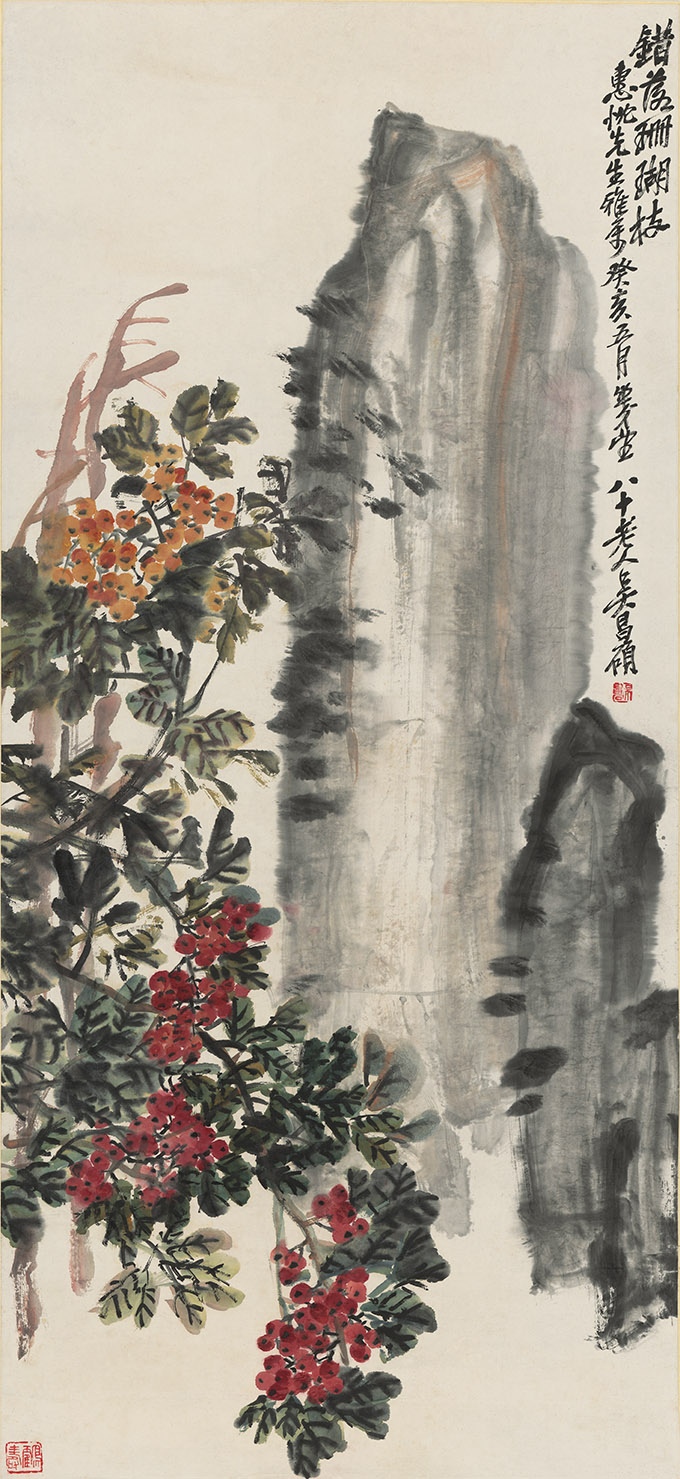 錯落珊瑚枝
惠桃先生雅属癸亥五月寒尽八十老人吳昌碩